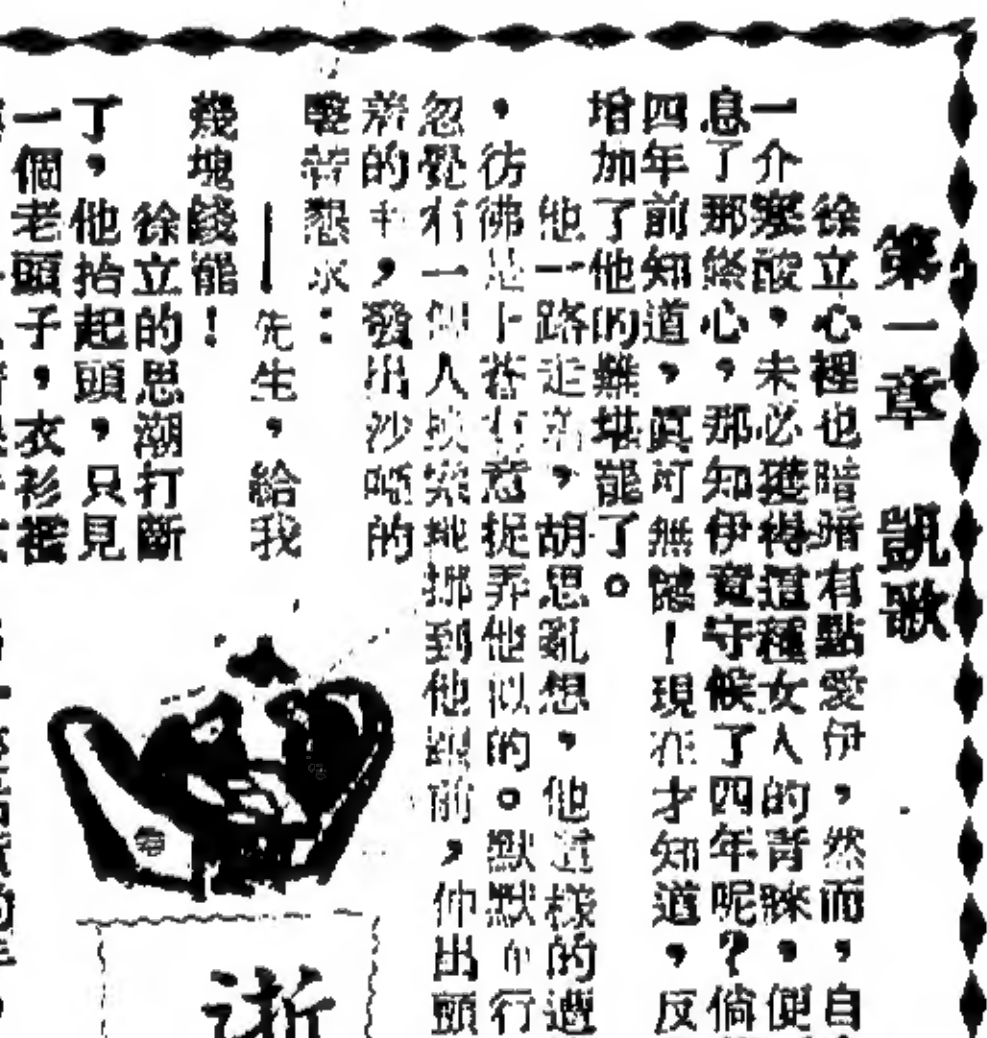 第一章　凱歌
徐立心裡也暗暗有點愛伊，然而，自
一介寒酸，未必獲得這種女人的青睞，便
息了那條心，那知伊竟守候了四年呢？倘
四年前知道，真可無憾！現在才知道，反
增加了他的難堪罷了。
他一路走着，胡思亂想，他這樣的遭
，彷彿是上蒼有意捉弄他似的。默默的行
忽覺有一個人挨挨挪到他跟前，伸出顫
着的手，發出沙啞的
聲苦懇求：
——先生，給我
幾塊錢罷！
徐立的思潮打斷
了，他抬起頭，只見
一個老頭子，衣衫襤
逝